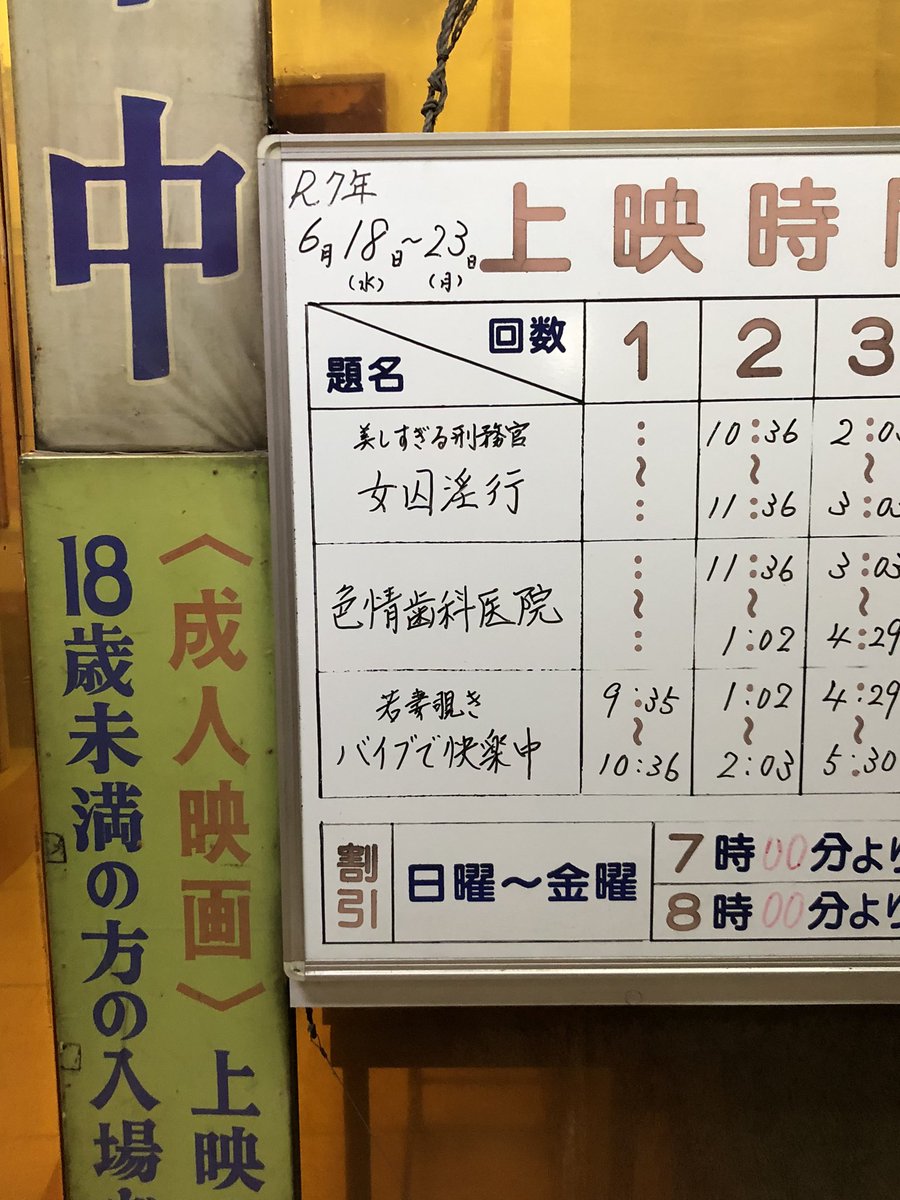 中
〈成人映画〉上映
18歳未満の方の入場
R.7年
6月18日～23日
(水) (月)
上映時
回数
題名
1 2 3
美しすぎる刑務官
女囚淫行
: ～ :
10:36 ～ 11:36
2:03 ～ 3:03
色情歯科医院
: ～ :
11:36 ～ 1:02
3:03 ～ 4:29
若妻覗き
バイブで快楽中
9:35 ～ 10:36
1:02 ～ 2:03
4:29 ～ 5:30
割引
日曜～金曜
7時00分より
8時00分より